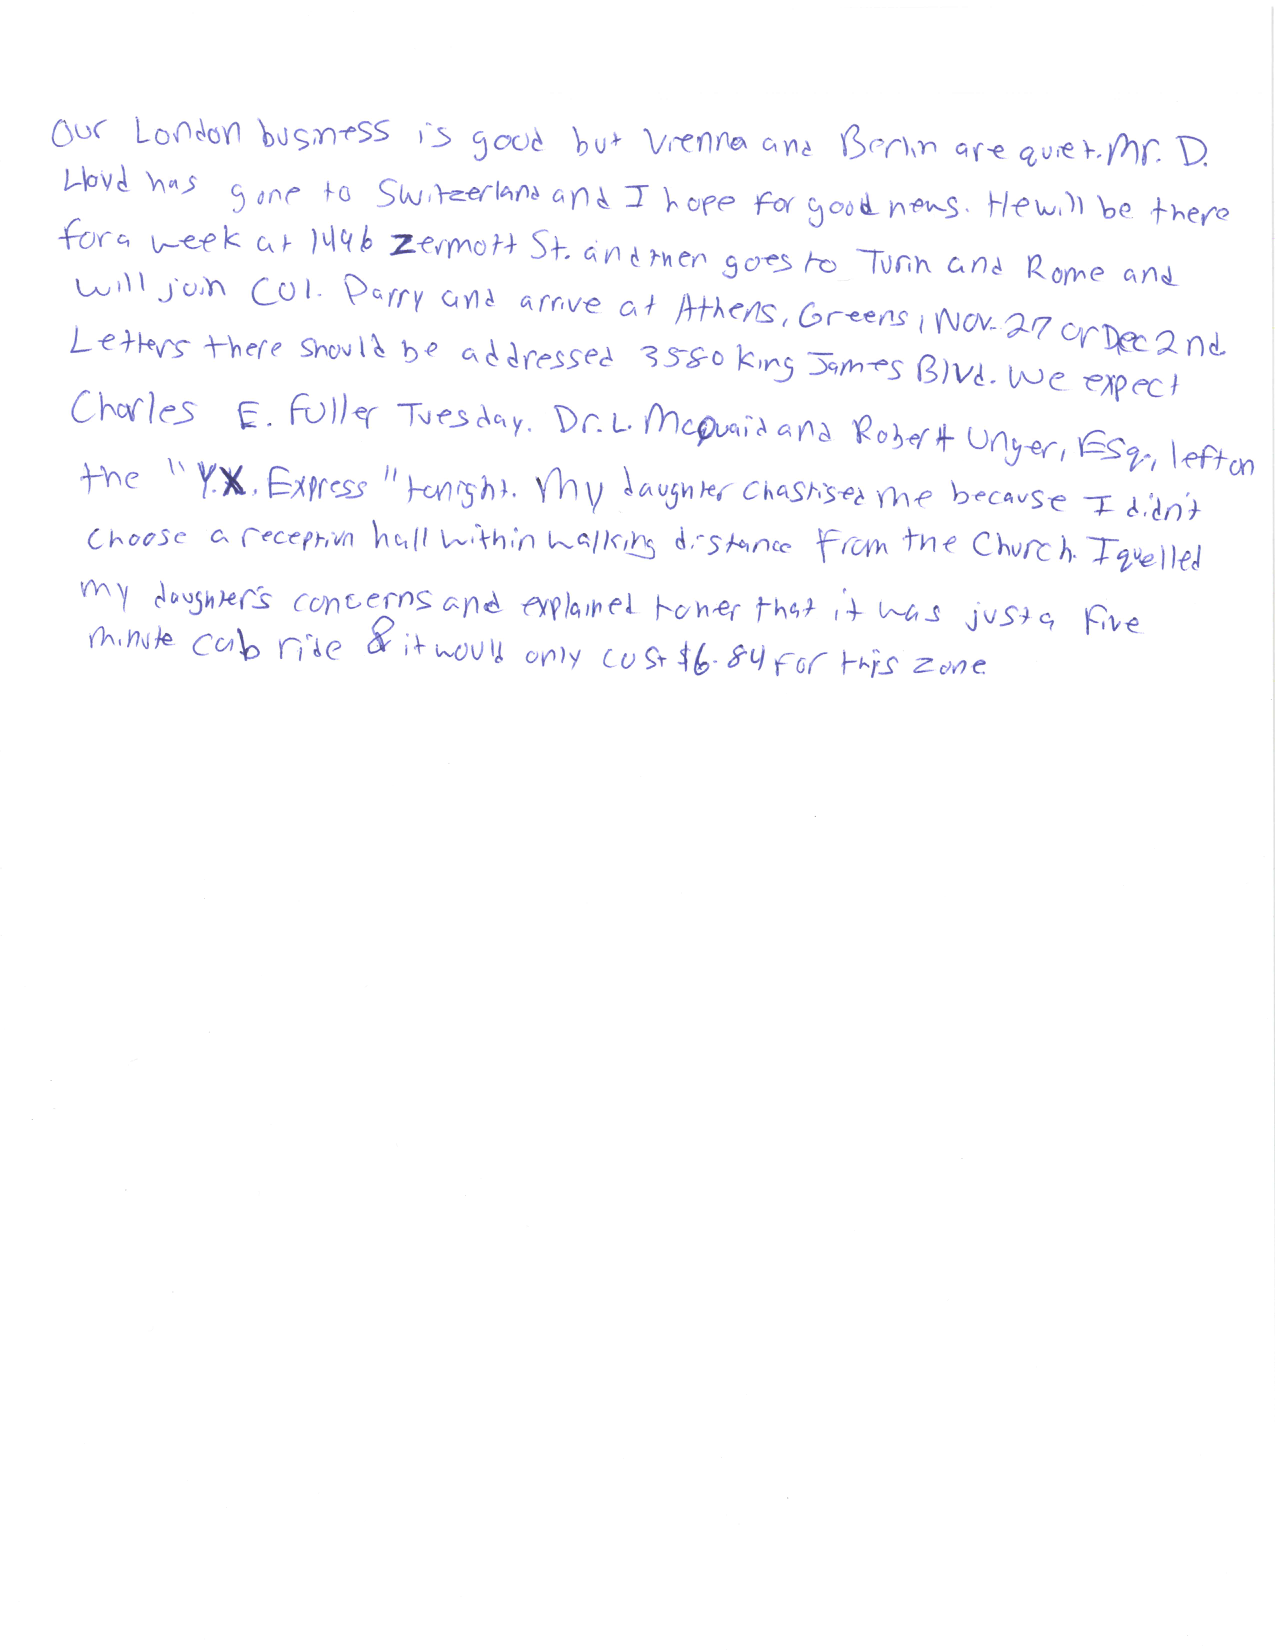 Our London business is good but Vienna and Berlin are quiet. Mr. D.
Lloyd has gone to Switzerland and I hope for good news. He will be there
for a week at 1496 Zermott St. and then goes to Turin and Rome and
will join Col. Parry and arrive at Athens, Greens, Nov. 27 or Dec 2nd
Letters there should be addressed 3580 King James Blvd. We expect
Charles E. Fuller Tuesday. Dr. L. McQuaid and Robert Unger, Esq., left on
the "Y.X. Express" tonight. My daughter chastised me because I didn't
choose a reception hall within walking distance from the church. I quelled
my daughter's concerns and explained to her that it was just a five
minute cab ride & it would only cost $6.84 for this zone